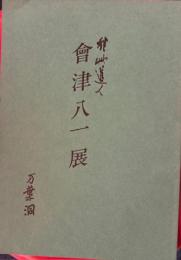 秋艸道人
會津八一展
万葉洞